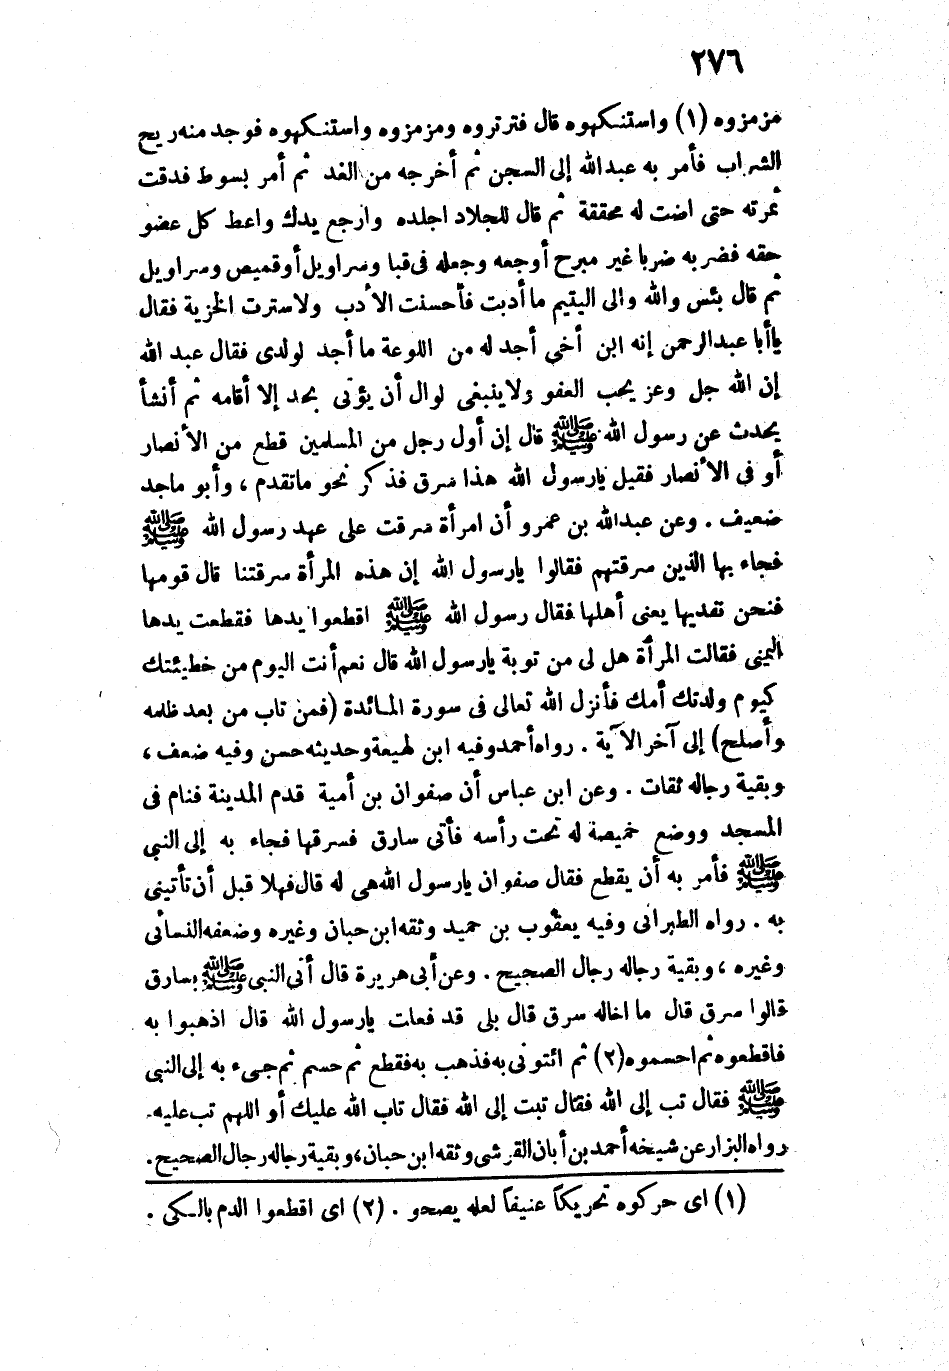 ٢٧٦
مزمزوه (١) واستنكهوه قال فترتروه ومزمزوه واستنكهوه فوجد منه ريح
الشراب فأمر به عبدالله إلى السجن ثم أخرجه من الغد ثم أمر بسوط فدقت
ثمرته حتى اضت له محققة ثم قال للجلاد اجلده وارجع يدك واعط كل عضو
حقه فضربه ضربا غير مبرح أوجعه وجعله فى قبا وسراويل أو قميص وسراويل
ثم قال بئس والله والى اليتيم ما أدبت فأحسنت الأدب ولا سترت الخزية فقال
يا أبا عبدالرحمن إنه ابن أخى أجد له من اللوعة ما أجد لولدى فقال عبد الله
إن الله جل وعز يحب العفو ولا ينبغى لوال أن يؤتى بحد إلا أقامه ثم أنشأ
يحدث عن رسول الله ﷺ قال إن أول رجل من المسلمين قطع من الأنصار
أو فى الأنصار فقيل يارسول الله هذا سرق فذكر نحو ماتقدم ، وأبو ماجد
ضعيف . وعن عبدالله بن عمرو أن امرأة سرقت على عهد رسول الله ﷺ
فجاء بها الذين سرقتهم فقالوا يارسول الله إن هذه المرأة سرقتنا قال قومها
فنحن نفديها يعنى أهلها فقال رسول الله ﷺ اقطعوا يدها فقطعت يدها
اليمنى فقالت المرأة هل لى من توبة يارسول الله قال نعم أنت اليوم من خطيئتك
كيوم ولدتك أمك فأنزل الله تعالى فى سورة المائدة (فمن تاب من بعد ظلمه
وأصلح) إلى آخر الآية . رواه أحمد وفيه ابن لهيعة وحديثه حسن وفيه ضعف ،
وبقية رجاله ثقات . وعن ابن عباس أن صفوان بن أمية قدم المدينة فنام فى
المسجد ووضع خميصة له تحت رأسه فأتى سارق فسرقها فجاء به إلى النبى
ﷺ فأمر به أن يقطع فقال صفوان يارسول الله هى له قال فهلا قبل أن تأتينى
به . رواه الطبرانى وفيه يعقوب بن حميد وثقه ابن حبان وغيره وضعفه النسائى
وغيره ، وبقية رجاله رجال الصحيح . وعن أبى هريرة قال أتى النبى ﷺ بسارق
قالوا سرق قال ما اخاله سرق قال بلى قد فعلت يارسول الله قال اذهبوا به
فاقطعوه ثم احسموه (٢) ثم ائتونى به فذهب به فقطع ثم حسم ثم جىء به إلى النبى
ﷺ فقال تب إلى الله فقال تبت إلى الله فقال تاب الله عليك أو اللهم تب عليه.
رواه البزار عن شيخه أحمد بن أبان القرشى وثقه ابن حبان ، وبقية رجاله رجال الصحيح .
(١) اى حركوه تحريكاً عنيفاً لعله يصحو . (٢) اى اقطعوا الدم بالكى .